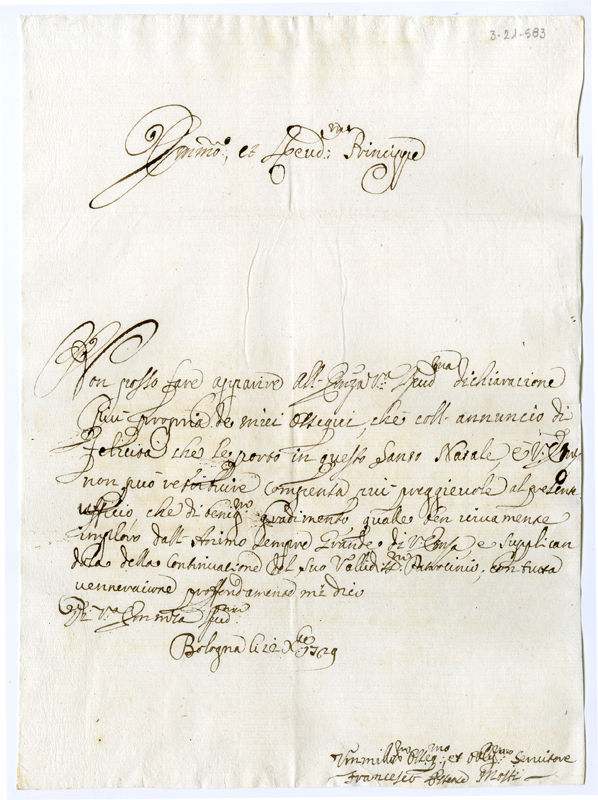 3-21-583
Emmo:, et Reud:mo Principe
Non posso fare apparire all' Emza Vra Reudma dichiaracione
piu propria de miei ossequi, che coll' annuncio di
Felicità che le porto in questo Santo Natale, e V: Emza
non può restituire compenta più preggievole al presente
ufficio, che di benigmo gradimento, quale ben vivamente
imploro dall' Animo sempre Grande di V: Emza e supplican
dola della Continuacione del suo Patrocinio, con tutta
venneracione profondamente mi dico
Di V:ra Eminza Reudma
Bologna li 22 Xbre 1729
Vmmilmo Osseq:mo, et Obblig:mo Servitore
Francesco Mosti